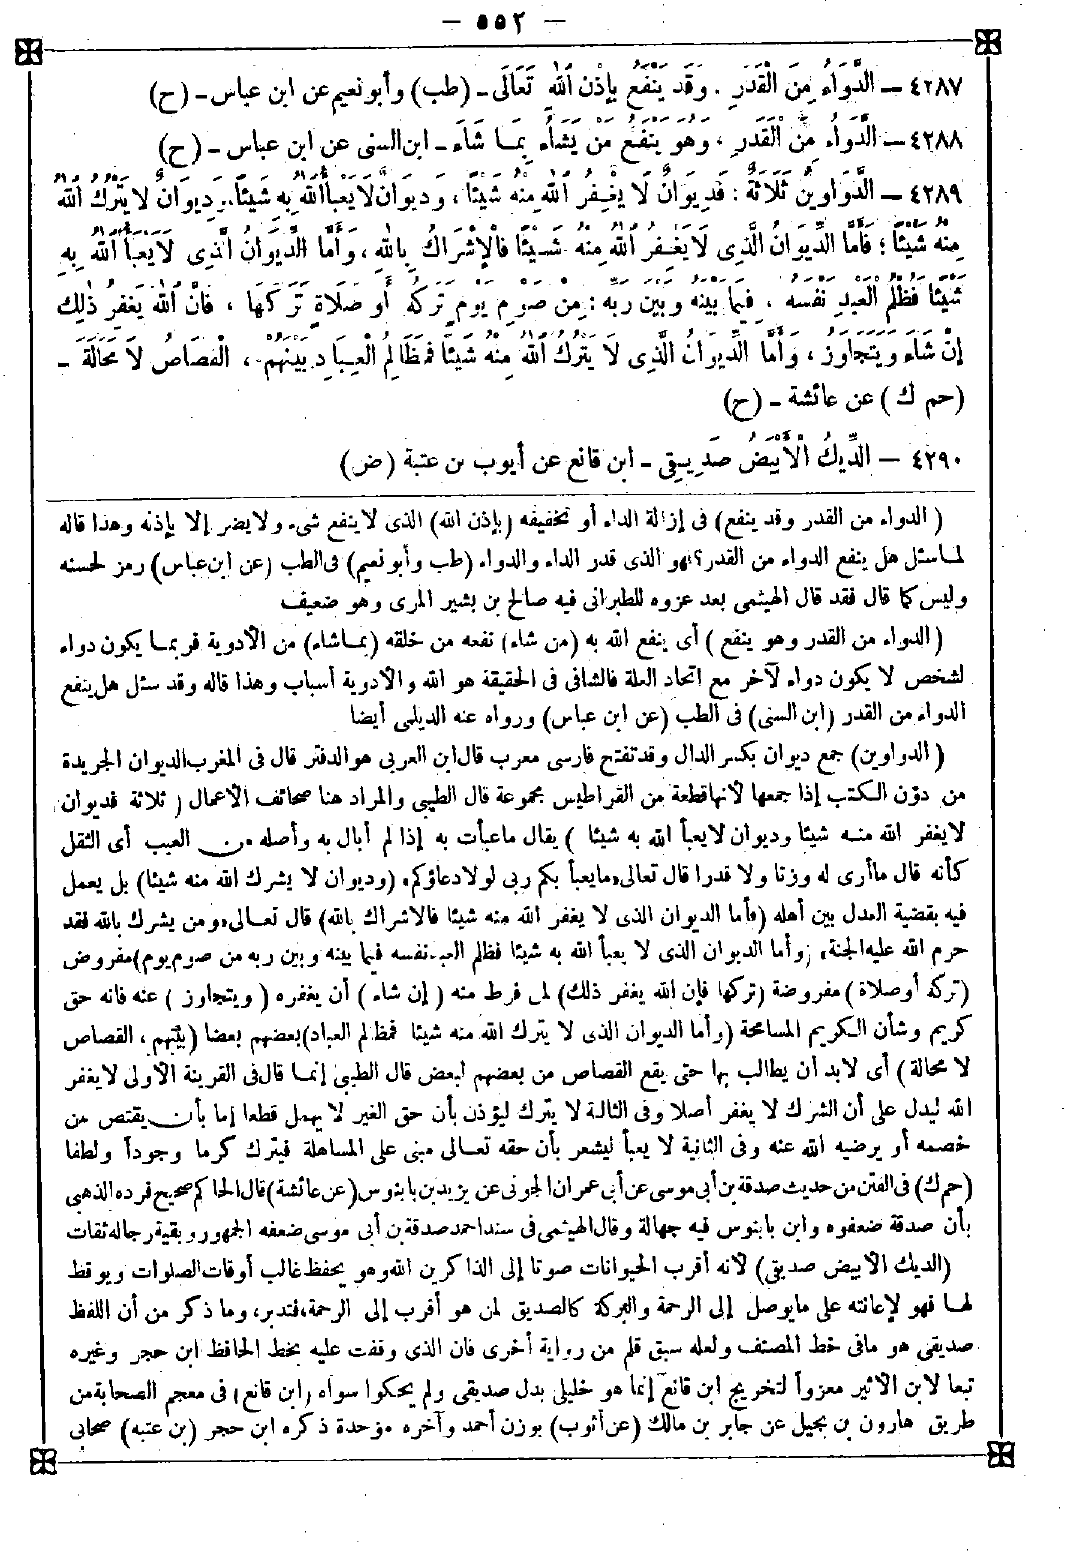 — ٥٥٢ —
٤٢٨٧ — الدَّوَاءُ مِنَ الْقَدَرِ . وَقَد يَنْفَعُ بِإِذْنِ اللهِ تَعَالَى - (طب) وأبو نعيم عن ابن عباس - (ح)
٤٢٨٨ — الدَّوَاءُ مِنَ الْقَدَرِ ، وَهُوَ يَنْفَعُ مَنْ يَشَاءُ بِمَا شَاءَ - ابن السنى عن ابن عباس - (ح)
٤٢٨٩ — الدَّوَاوِينُ ثَلَاثَةٌ : فَدِيوَانٌ لَا يَغْفِرُ اللهُ مِنْهُ شَيْئًا ، وَدِيوَانٌ لَا يَعْبَأُ اللهُ بِهِ شَيْئًا، وَدِيوَانٌ لَا يَتْرُكُ اللهُ
مِنْهُ شَيْئًا ؛ فَأَمَّا الدِّيوَانُ الَّذِى لَا يَغْفِرُ اللهُ مِنْهُ شَيْئًا فَالْإِشْرَاكُ بِاللهِ ، وَأَمَّا الدِّيوَانُ الَّذِى لَا يَعْبَأُ اللهُ بِهِ
شَيْئًا فَظُلْمُ الْعَبْدِ نَفْسَهُ ، فِيمَا بَيْنَهُ وَبَيْنَ رَبِّهِ : مِنْ صَوْمِ يَوْمٍ تَرَكَهُ أَو صَلَاةٍ تَرَكَهَا ، فَانَّ اللهَ يَغْفِرُ ذٰلِكَ
إِنْ شَاءَ وَيَتَجَاوَزُ ، وَأَمَّا الدِّيوَانُ الَّذِى لَا يَتْرُكُ اللهُ مِنْهُ شَيْئًا فَمَظَالِمُ الْعِبَادِ بَيْنَهُمْ ، الْقِصَاصُ لَا مَحَالَةَ -
(حم ك) عن عائشة - (ح)
٤٢٩٠ — الدِّيكُ الْأَبْيَضُ صَدِيقِى - ابن قانع عن أيوب بن عتبة (ض)
(الدواء من القدر وقد ينفع) فى إزالة الداء أو تخفيفه (بإذن الله) الذى لا ينفع شىء ولا يضر إلا بإذنه وهذا قاله
لما سئل هل ينفع الدواء من القدر؟ فهو الذى قدر الداء والدواء (طب وأبو نعيم) فى الطب (عن ابن عباس) رمز لحسنه
وليس كما قال فقد قال الهيثمى بعد عزوه للطبرانى فيه صالح بن بشير المرى وهو ضعيف
(الدواء من القدر وهو ينفع) أى ينفع الله به (من شاء) نفعه من خلقه (بما شاء) من الأدوية فربما يكون دواء
لشخص لا يكون دواء لآخر مع اتحاد العلة فالشافى فى الحقيقة هو الله والأدوية أسباب وهذا قاله وقد سئل هل ينفع
الدواء من القدر (ابن السنى) فى الطب (عن ابن عباس) ورواه عنه الديلمى أيضا
(الدواوين) جمع ديوان بكسر الدال وقد تفتح فارسى معرب قال ابن العربى هو الدفتر قال فى المغرب الديوان الجريدة
من دوّن الكتب إذا جمعها لأنها قطعة من القراطيس مجموعة قال الطيبى والمراد هنا صحائف الأعمال (ثلاثة فديوان
لا يغفر الله منه شيئا وديوان لا يعبأ الله به شيئا) يقال ما عبأت به إذا لم أبال به وأصله من العبب أى الثقل
كأنه قال ما أرى له وزنا ولا قدرا قال تعالى «ما يعبأ بكم ربى لولا دعاؤكم» (وديوان لا يترك الله منه شيئا) بل يعمل
فيه بقضية العدل بين أهله (فأما الديوان الذى لا يغفر الله منه شيئا فالاشراك بالله) قال تعالى «ومن يشرك بالله فقد
حرم الله عليه الجنة» (وأما الديوان الذى لا يعبأ الله به شيئا فظلم العبد نفسه فيما بينه وبين ربه من صوم يوم) مفروض
(تركه أو صلاة) مفروضة (تركها فإن الله يغفر ذلك) لمن فرط منه (إن شاء) أن يغفره (ويتجاوز) عنه فانه حق
كريم وشأن الكريم المسامحة (وأما الديوان الذى لا يترك الله منه شيئا فمظالم العباد) بعضهم بعضا (بينهم ، القصاص
لا محالة) أى لابد أن يطالب بها حتى يقع القصاص من بعضهم لبعض قال الطيبى إنما قال فى القرينة الأولى لا يغفر
الله ليدل على أن الشرك لا يغفر أصلا وفى الثالثة لا يترك ليؤذن بأن حق الغير لا يهمل قطعا إما بأن يقتص من
خصمه أو يرضيه الله عنه وفى الثانية لا يعبأ ليشعر بأن حقه تعالى مبنى على المساهلة فيترك كرما وجوداً ولطفا
(حم ك) فى الفتن من حديث صدقة بن أبى موسى عن أبى عمران الجونى عن يزيد بن بابنوس (عن عائشة) قال الحاكم صحيح فرده الذهبى
بأن صدقة ضعفوه وابن بابنوس فيه جهالة وقال الهيثمى فى سند احمد صدقة بن أبى موسى ضعفه الجمهور وبقية رجاله ثقات
(الديك الأبيض صديقى) لأنه أقرب الحيوانات صوتا إلى الذاكرين الله وهو يحفظ غالب أوقات الصلوات ويوقظ
لها فهو لإعانته على ما يوصل إلى الرحمة والبركة كالصديق لمن هو أقرب إلى الرحمة، فتدبر، وما ذكر من أن اللفظ
صديقى هو ما فى خط المصنف ولعله سبق قلم من رواية أخرى فان الذى وقفت عليه بخط الحافظ ابن حجر وغيره
تبعا لابن الأثير معزواً لتخريج ابن قانع إنما هو خليلى بدل صديقى ولم يحكوا سواه (ابن قانع) فى معجم الصحابة من
طريق هارون بن نجيل عن جابر بن مالك (عن أثوب) بوزن أحمد وآخره موحدة ذكره ابن حجر (بن عتبه) صحابى